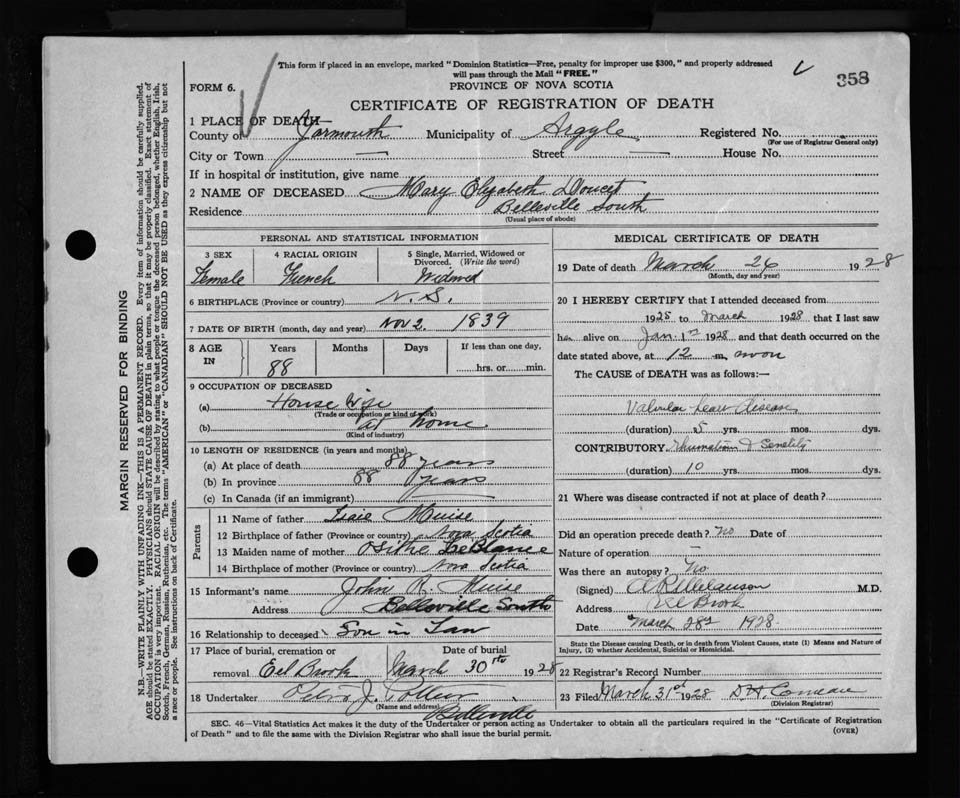 This form if placed in an envelope, marked "Dominion Statistics—Free, penalty for improper use $300," and properly addressed
will pass through the Mail "FREE."
358
FORM 6.
PROVINCE OF NOVA SCOTIA
CERTIFICATE OF REGISTRATION OF DEATH
1 PLACE OF DEATH—
County of Yarmouth Municipality of Argyle Registered No.
(For use of Registrar General only)
City or Town — Street — House No.
If in hospital or institution, give name
2 NAME OF DECEASED Mary Elizabeth Doucet
Residence Belleville South
(Usual place of abode)
PERSONAL AND STATISTICAL INFORMATION
3 SEX
Female
4 RACIAL ORIGIN
French
5 Single, Married, Widowed or
Divorced. (Write the word)
Widowed
6 BIRTHPLACE (Province or country) N. S.
7 DATE OF BIRTH (month, day and year) Nov 2 1839
8 AGE IN
Years Months Days If less than one day,
88 hrs. or min.
9 OCCUPATION OF DECEASED
(a) House Wife
(Trade or occupation or kind of work)
(b) at home
(Kind of industry)
10 LENGTH OF RESIDENCE (in years and months)
(a) At place of death 88 years
(b) In province 88 years
(c) In Canada (if an immigrant)
Parents
11 Name of father Muise
12 Birthplace of father (Province or country) Nova Scotia
13 Maiden name of mother Osithe LeBlanc
14 Birthplace of mother Nova Scotia
15 Informant's name John R. Muise
Address Belleville South
16 Relationship to deceased Son in Law
17 Place of burial, cremation or Date of burial
removal Eel Brook March 30th 1928
18 Undertaker J.
(Name and address)
Belleville
MEDICAL CERTIFICATE OF DEATH
19 Date of death March 26 1928
(Month, day and year)
20 I HEREBY CERTIFY that I attended deceased from
1925 to March 1928 that I last saw
h alive on Jan 1st 1928 and that death occurred on the
date stated above, at 12 m. noon
The CAUSE of DEATH was as follows:—
Valvular heart disease
(duration) 5 yrs. mos. dys.
CONTRIBUTORY Rheumatism & Senility
(duration) 10 yrs. mos. dys.
21 Where was disease contracted if not at place of death?
Did an operation precede death? No Date of
Nature of operation —
Was there an autopsy? No
(Signed) M.D.
Address Eel Brook
Date March 28th 1928.
State the Disease causing Death, or in death from Violent Causes, state (1) Means and Nature of
Injury, (2) whether Accidental, Suicidal or Homicidal.
22 Registrar's Record Number
23 Filed March 31st 1928 D. H. Comeau
(Division Registrar)
SEC. 46—Vital Statistics Act makes it the duty of the Undertaker or person acting as Undertaker to obtain all the particulars required in the "Certificate of Registration
of Death" and to file the same with the Division Registrar who shall issue the burial permit.
(OVER)
MARGIN RESERVED FOR BINDING
N.B.—WRITE PLAINLY WITH UNFADING INK—THIS IS A PERMANENT RECORD. Every item of information should be carefully supplied.
AGE should be stated EXACTLY. PHYSICIANS should STATE CAUSE OF DEATH in plain terms, so that it may be properly classified. Exact statement of
OCCUPATION is very important. RACIAL ORIGIN will be described by stating to what people or tongue the deceased person belonged, whether English, Irish,
Scotch, French, German, Russian, Ruthenian, etc. The terms "AMERICAN" or "CANADIAN" SHOULD NOT BE USED as they express citizenship but not
a race or people. See instructions on back of Certificate.